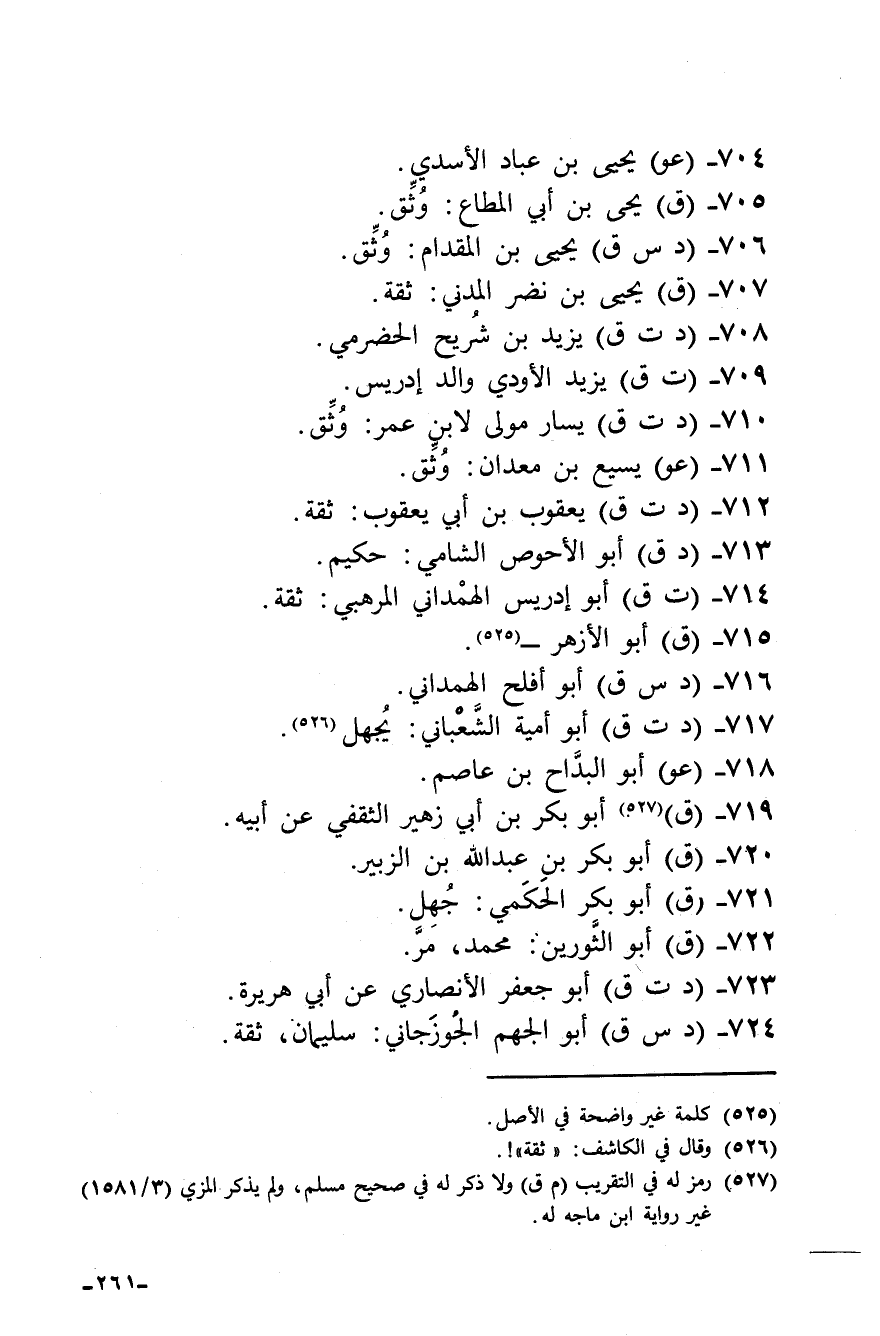 ٧٠٤ـ (عو) يحيى بن عباد الأسدي.
٧٠٥ـ (ق) يحى بن أبي المطاع: وُثِّق.
٧٠٦ـ (د س ق) يحيى بن المقدام: وُثِّق.
٧٠٧ـ (ق) يحيى بن نضر المدني: ثقة.
٧٠٨ـ (د ت ق) يزيد بن شُريح الحضرمي.
٧٠٩ـ (ت ق) يزيد الأودي والد إدريس.
٧١٠ـ (د ت ق) يسار مولى لابن عمر: وُثِّق.
٧١١ـ (عو) يسيع بن معدان: وُثِّق.
٧١٢ـ (د ت ق) يعقوب بن أبي يعقوب: ثقة.
٧١٣ـ (د ق) أبو الأحوص الشامي: حكيم.
٧١٤ـ (ت ق) أبو إدريس الهمْداني المرهبي: ثقة.
٧١٥ـ (ق) أبو الأزهر ـ(٥٢٥).
٧١٦ـ (د س ق) أبو أفلح الهمداني.
٧١٧ـ (د ت ق) أبو أمية الشَّعْباني: يُجهل(٥٢٦).
٧١٨ـ (عو) أبو البدَّاح بن عاصم.
٧١٩ـ (ق)(٥٢٧) أبو بكر بن أبي زهير الثقفي عن أبيه.
٧٢٠ـ (ق) أبو بكر بن عبدالله بن الزبير.
٧٢١ـ (ق) أبو بكر الحَكَمي: جُهِل.
٧٢٢ـ (ق) أبو الثَّورين: محمد، مَرَّ.
٧٢٣ـ (د ت ق) أبو جعفر الأنصاري عن أبي هريرة.
٧٢٤ـ (د س ق) أبو الجهم الجُوزَجاني: سليمان، ثقة.
(٥٢٥) كلمة غير واضحة في الأصل.
(٥٢٦) وقال في الكاشف: «ثقة»!.
(٥٢٧) رمز له في التقريب (م ق) ولا ذكر له في صحيح مسلم، ولم يذكر المزي (١٥٨١/٣)
غير رواية ابن ماجه له.
ـ٢٦١ـ